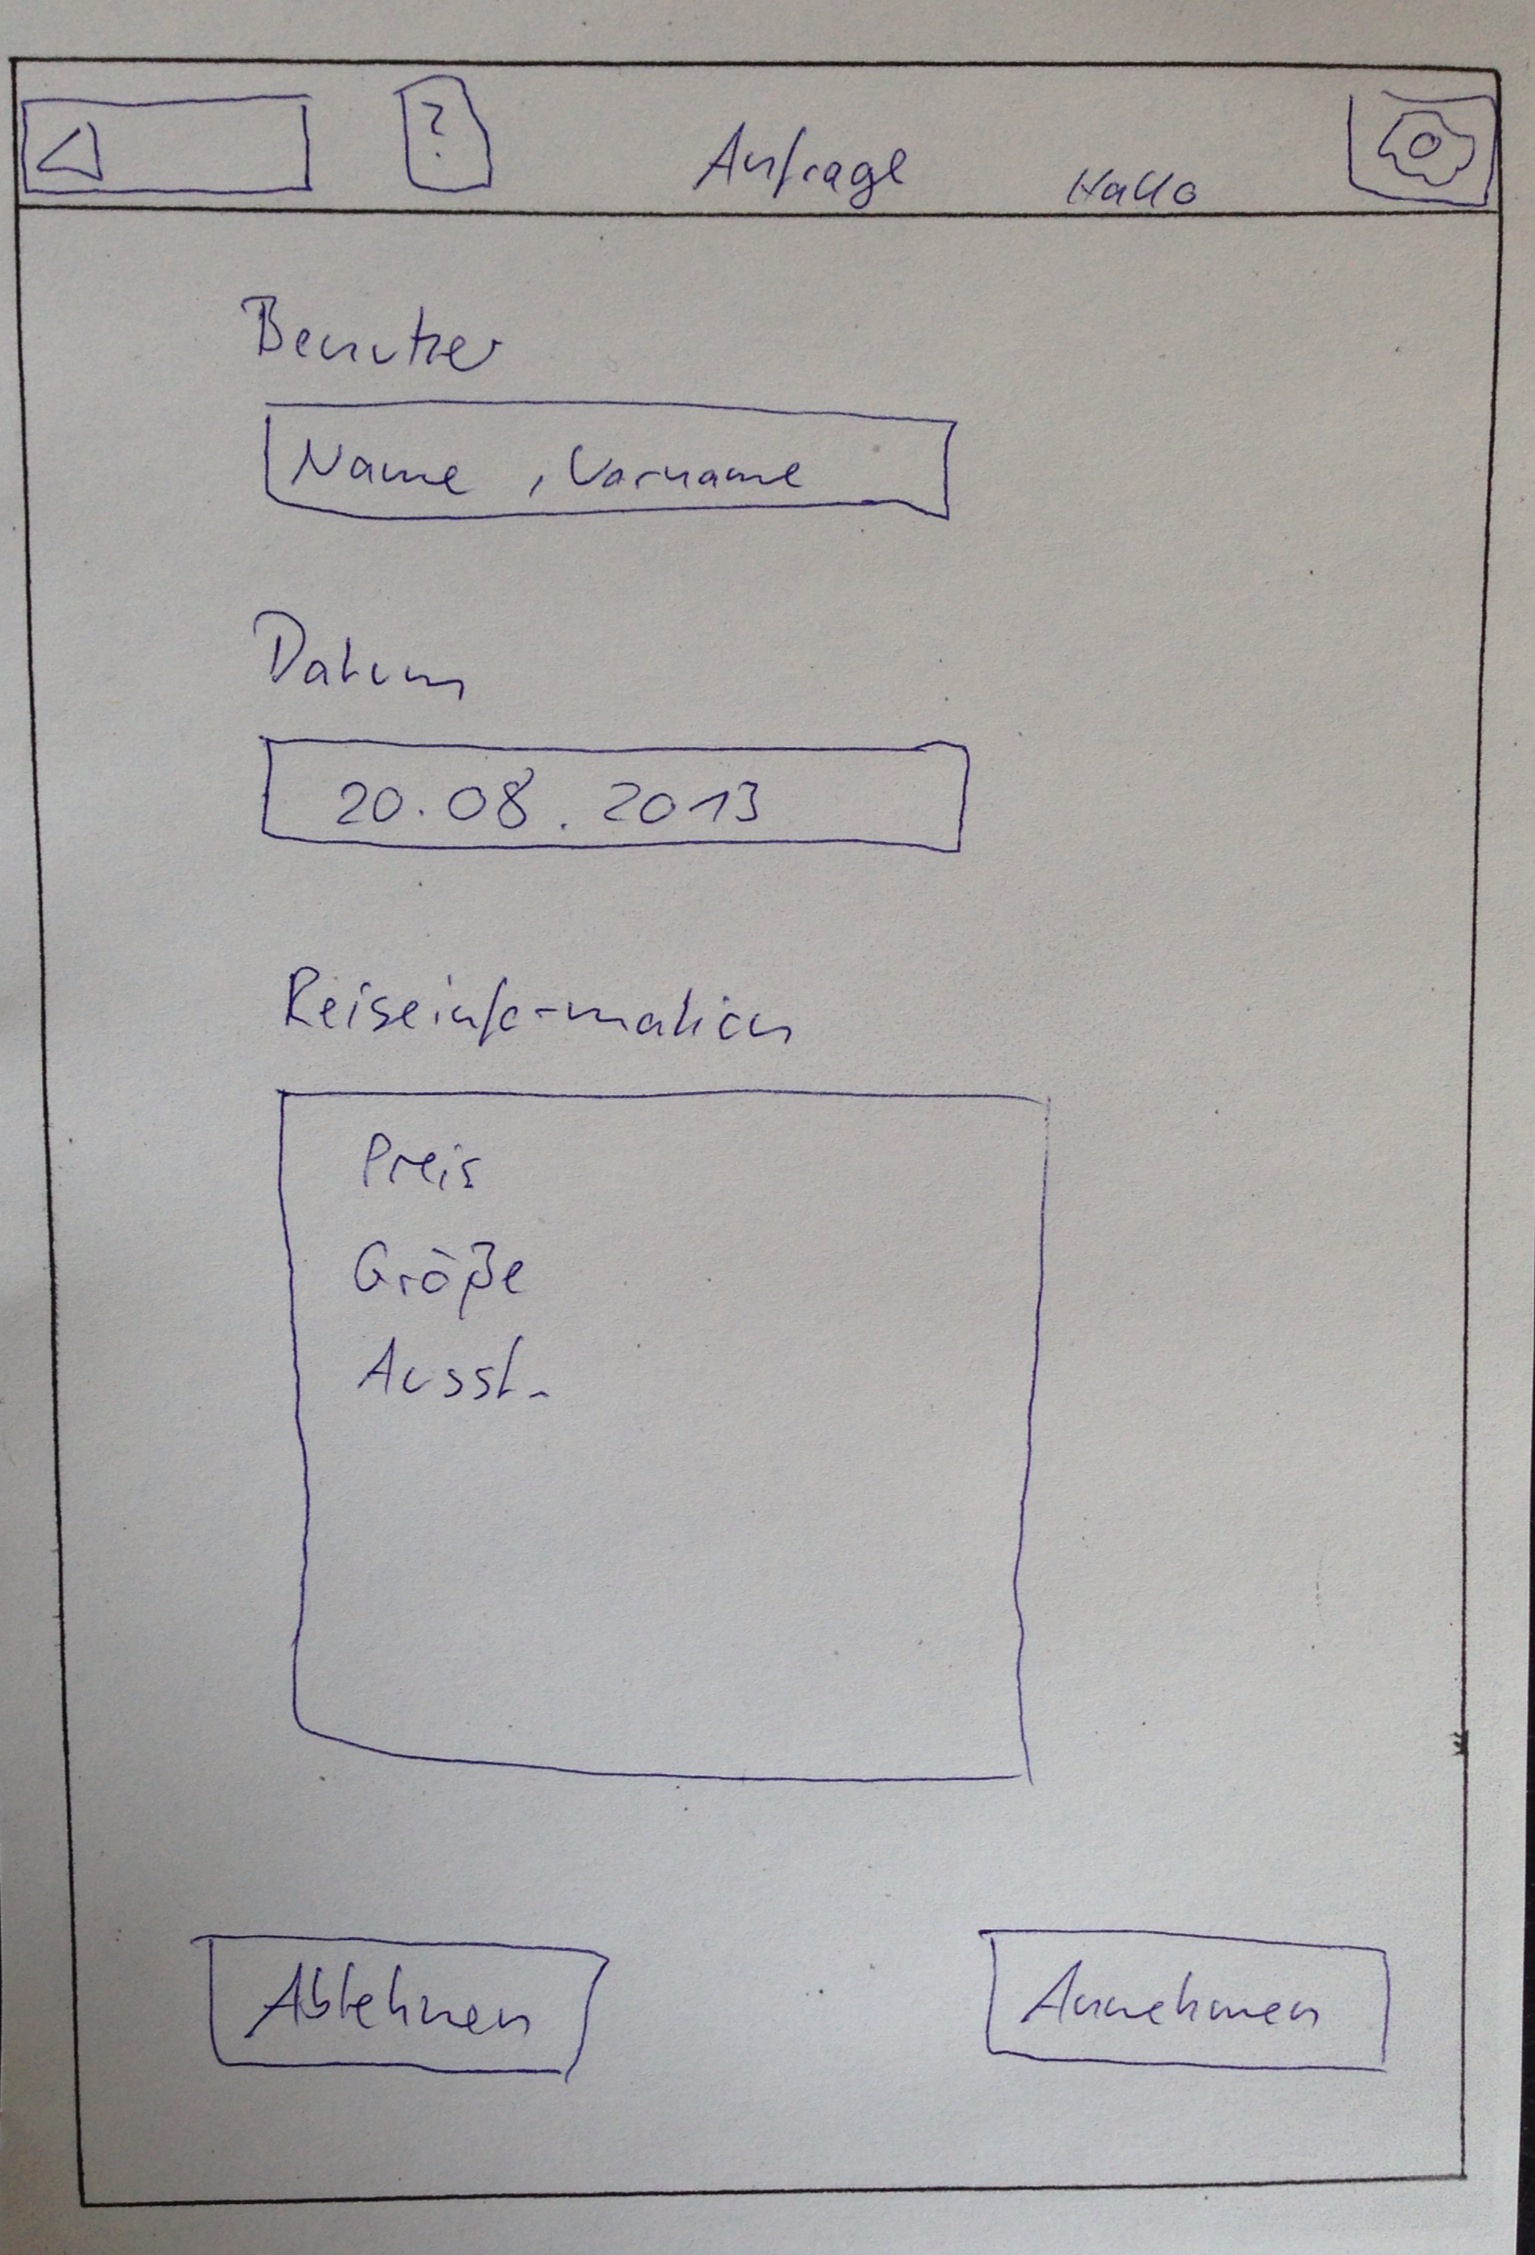 ?
Anfrage Hallo
Benutzer
Name , Vorname
Datum
20.08.2013
Reiseinformation
Preis
Größe
Ausst.
Ablehnen Annehmen